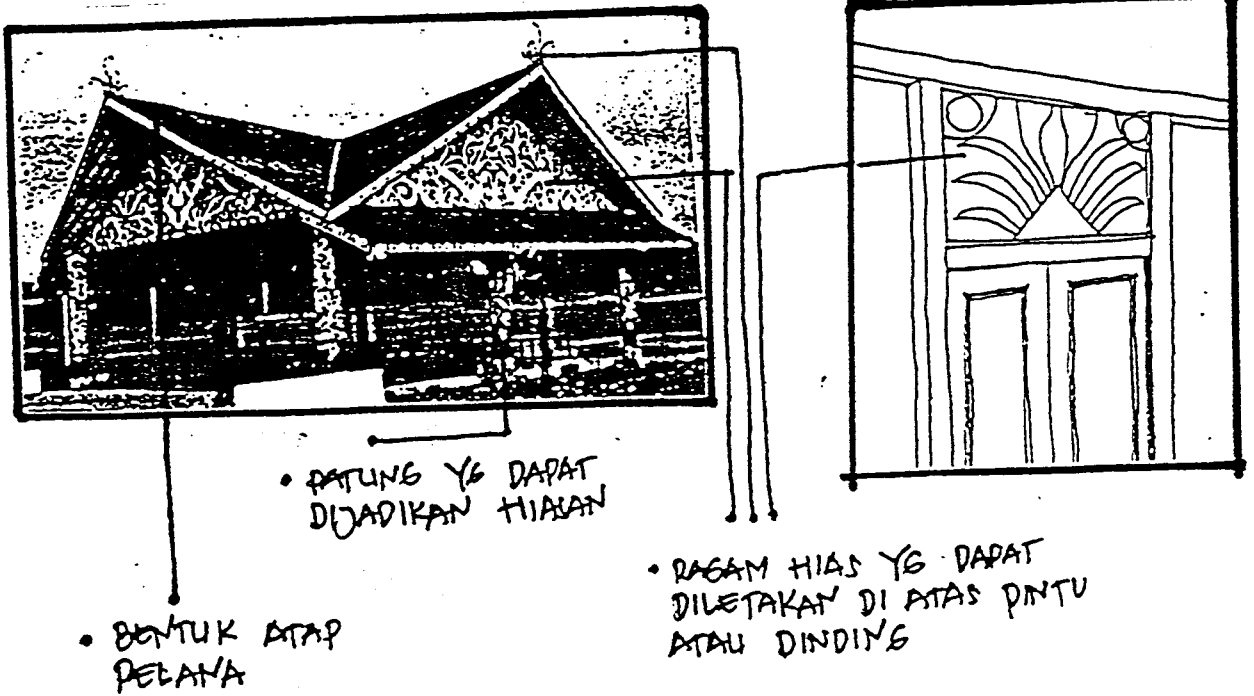 • PATUNG YG DAPAT
DIJADIKAN HIASAN
• RAGAM HIAS YG DAPAT
DILETAKAN DI ATAS PINTU
ATAU DINDING
• BENTUK ATAP
PELANA